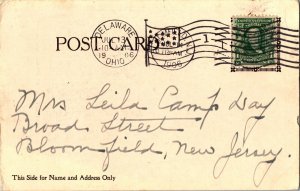 DELAWARE
19 06
OHIO
1
POST CARD
1906
Mrs Leila Camp Day
Broad Street
Bloomfield, New Jersey.
This Side for Name and Address Only